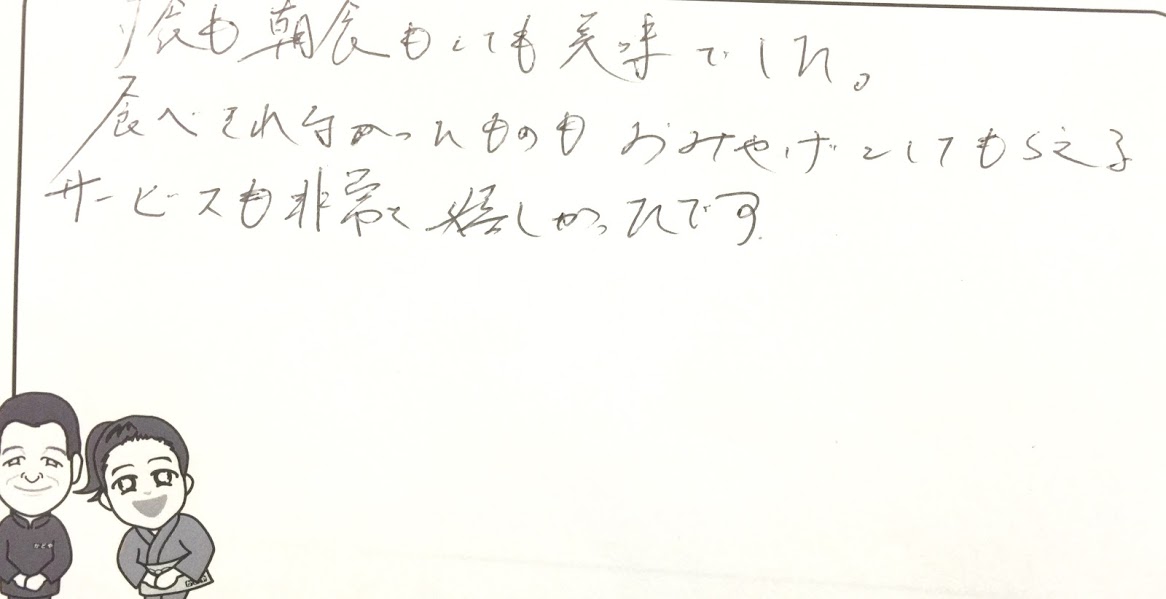 夕食も朝食もとても美味でした。
食べきれなかったものもおみやげとしてもらえる
サービスも非常に嬉しかったです